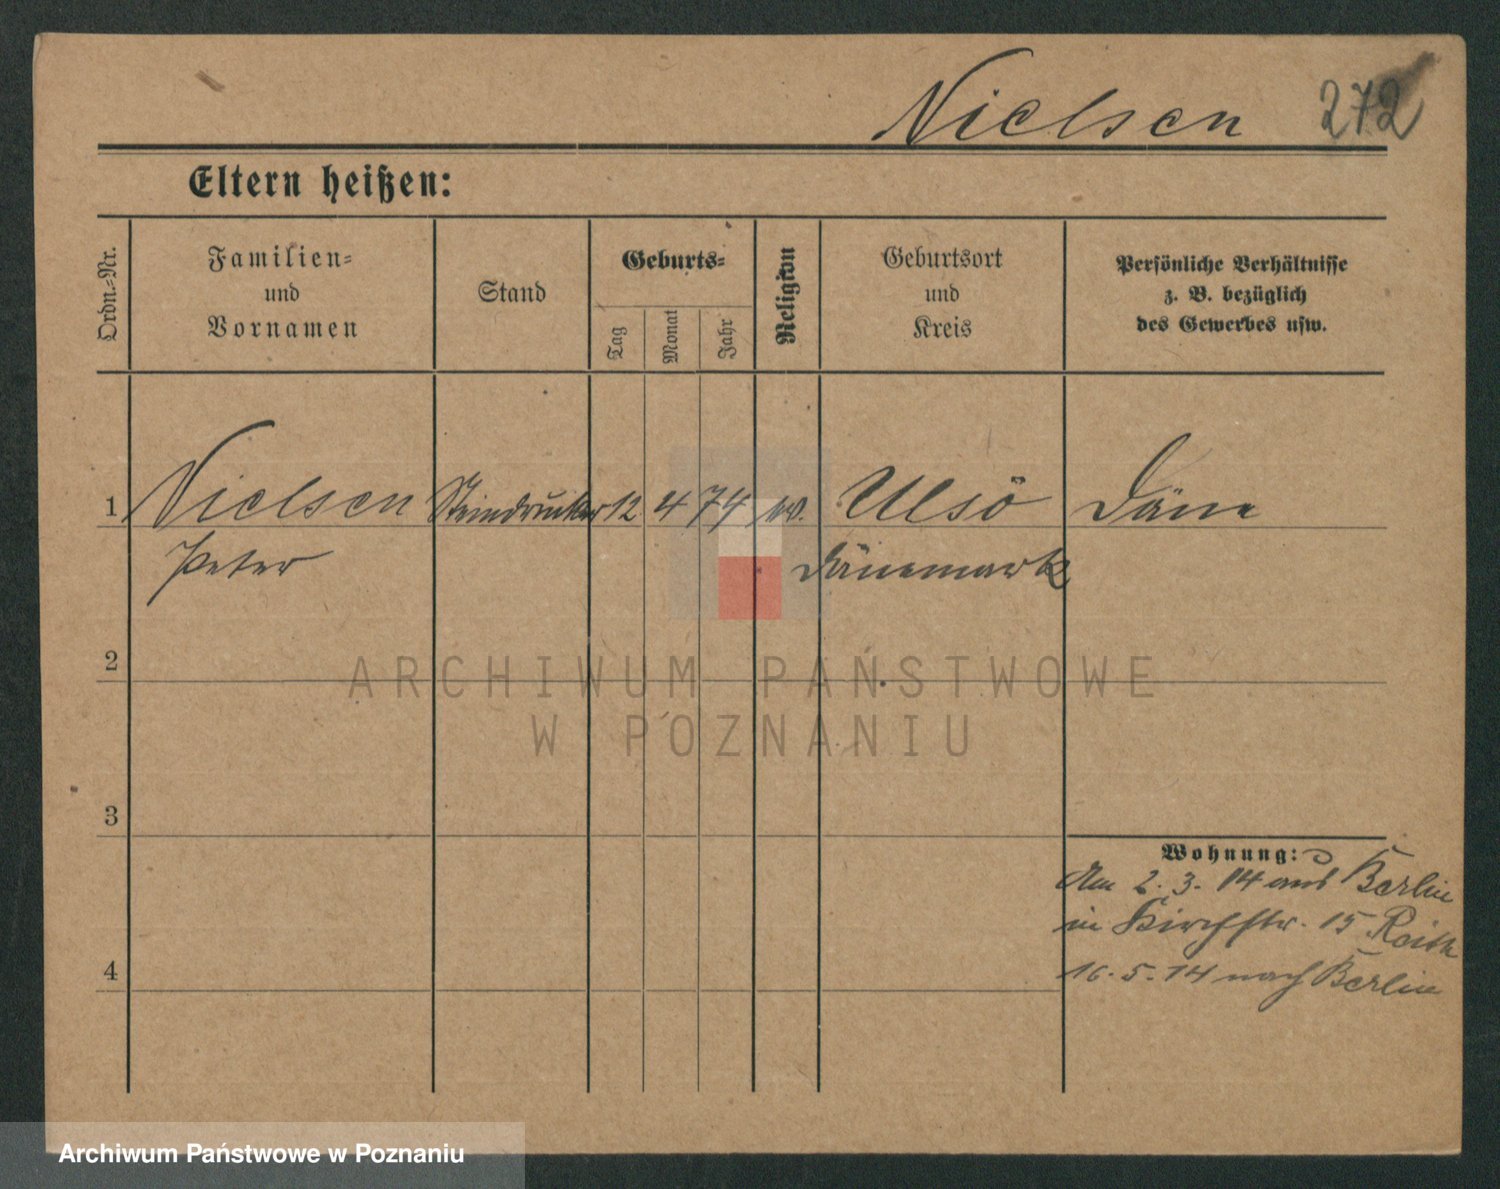 Nielsen 272
Eltern heißen:
Ordn.-Nr.
Familien-
und
Vornamen
Stand
Geburts-
Tag
Monat
Jahr
Religion
Geburtsort
und
Kreis
Persönliche Verhältnisse
z. B. bezüglich
des Gewerbes usw.
1 Nielsen Steindrucker 12 4 74 ev. Ulsö Däne
Peter Dänemark
2
ARCHIWUM PAŃSTWOWE
W POZNANIU
3
Wohnung:
Am 2. 3. 14 aus Berlin
in Kirchstr. 15
4
16. 5. 14 nach Berlin
Archiwum Państwowe w Poznaniu